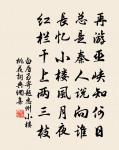 再游巫峡知何日
总是秦人说向谁
長忆小楼風月夜
红栏干上两三枝
白居易寄题忠州小楼
桃花